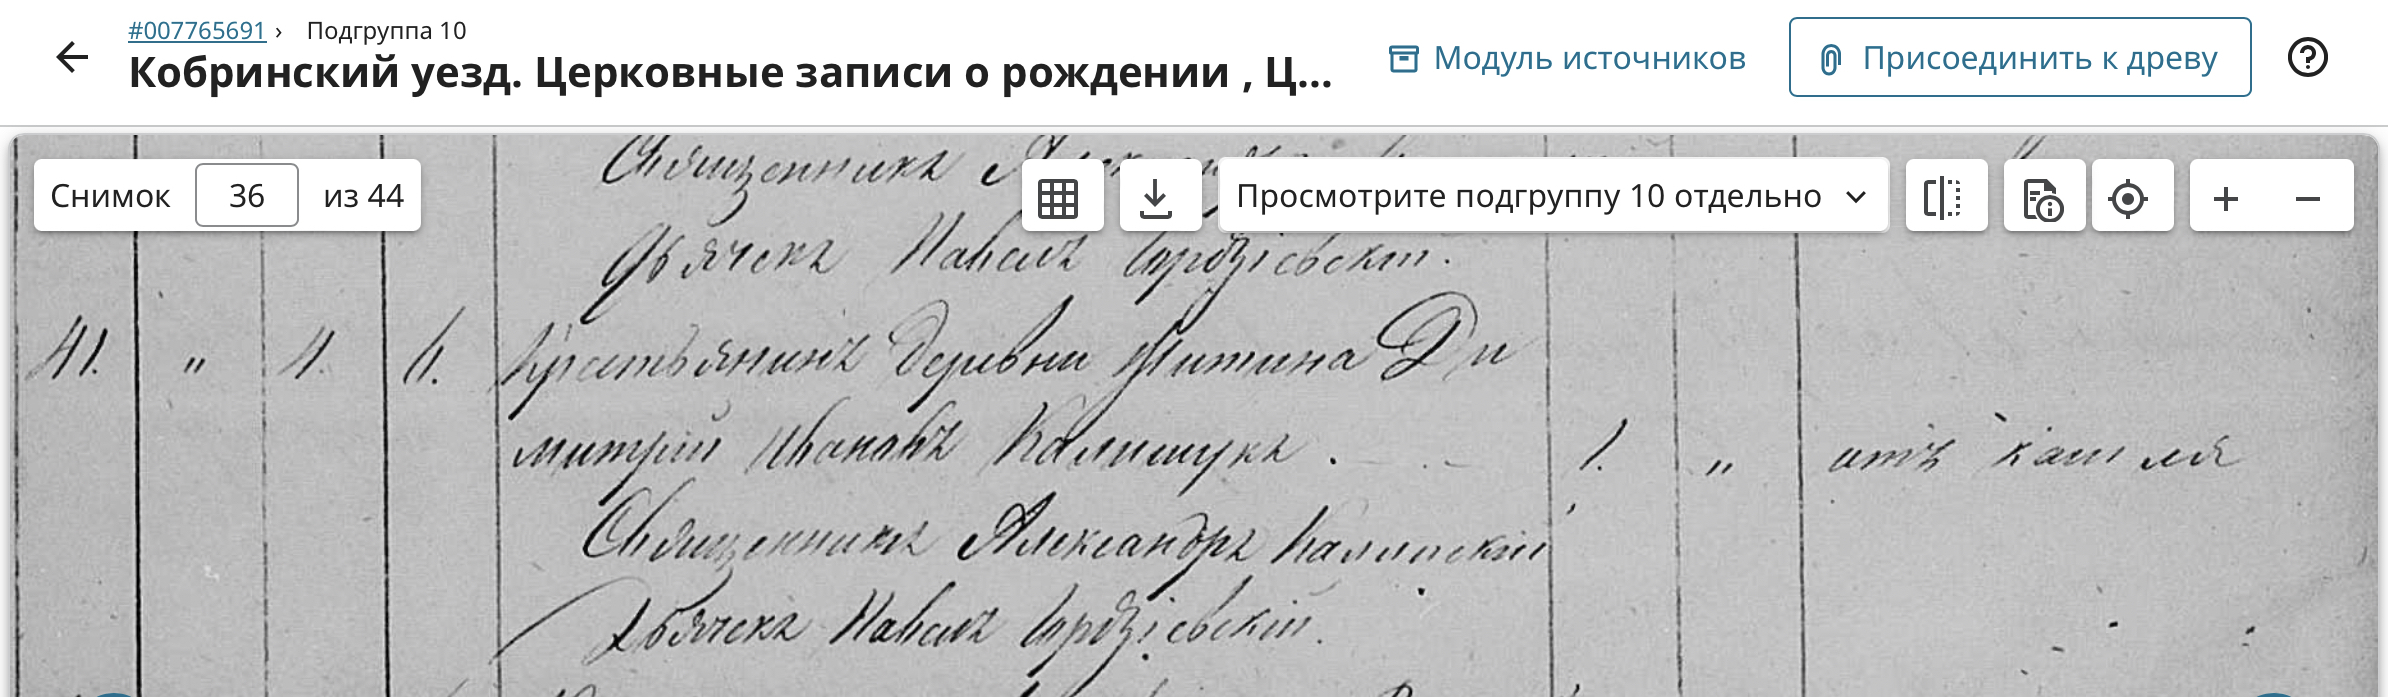 #007765691 › Подгруппа 10
Кобринский уезд. Церковные записи о рождении , Ц...
Модуль источников
Присоединить к древу
Снимок 36 из 44
Просмотрите подгруппу 10 отдельно
Священникъ
Дьячекъ Павелъ
41. " 4. 6. Крестьянинъ деревни Митина Ди
митрій Ивановъ Калишукъ . 1. " отъ кашля
Священникъ Александръ Калинскій
Дьячекъ Павелъ